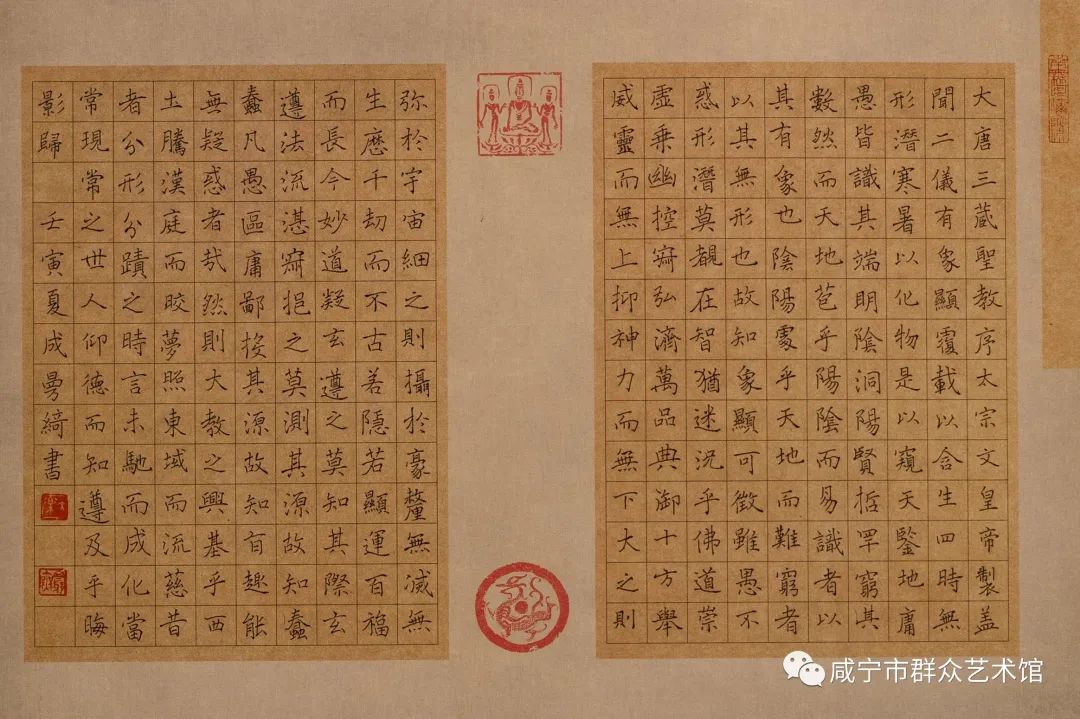 大唐三蔵聖教序太宗文皇帝製盖
聞二儀有象顯覆載以含生四時無
形潛寒暑以化物是以窺天鑒地庸
愚皆識其端明陰洞陽賢哲罕窮其
數然而天地苞乎陽陰而易識者以
其有象也陰陽處乎天地而難窮者
以其無形也故知象顯可徵雖愚不
惑形潛莫覩在智猶迷況乎佛道崇
虛乗幽控寂弘濟萬品典御十方舉
威靈而無上抑神力而無下大之則
弥於宇宙細之則攝於豪釐無滅無
生歷千劫而不古若隱若顯運百福
而長今妙道凝玄遵之莫知其際玄
遵法流湛寂挹之莫測其源故知蠢
蠢凡愚區庸鄙投其源故知旨趣能
無疑惑者哉然則大教之興基乎西
土騰漢庭而皎夢照東域而流慈昔
者分形分蹟之時言未馳而成化當
常現常之世人仰德而知遵及乎晦
影歸 壬寅夏成曼綺書
咸宁市群众艺术馆